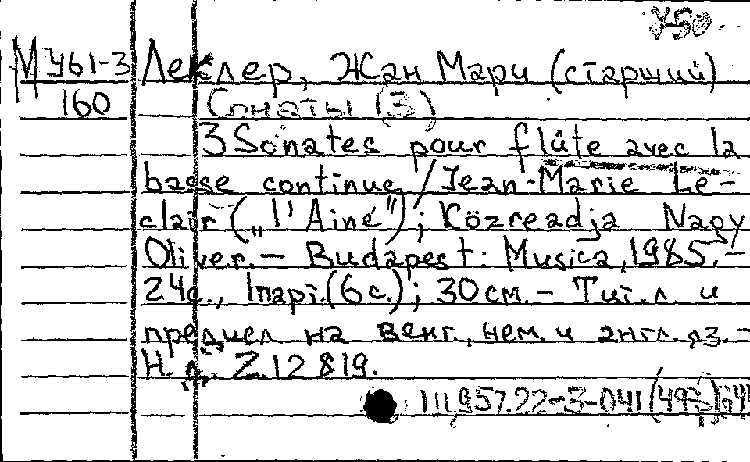 450
М У61-3 Леклер, Жан Мари (старший)
160 Сонаты (3)
3 Sonates pour flûte avec la
basse continue / Jean-Marie Le-
clair („l'Ainé"); Közreadja Nagy
Oliver. – Budapest: Musica, 1985. –
24с., 1парт.(6с.); 30см. – Тит.л. и
предисл на венг., нем. и англ. яз. –
Н.д. Z.12819.